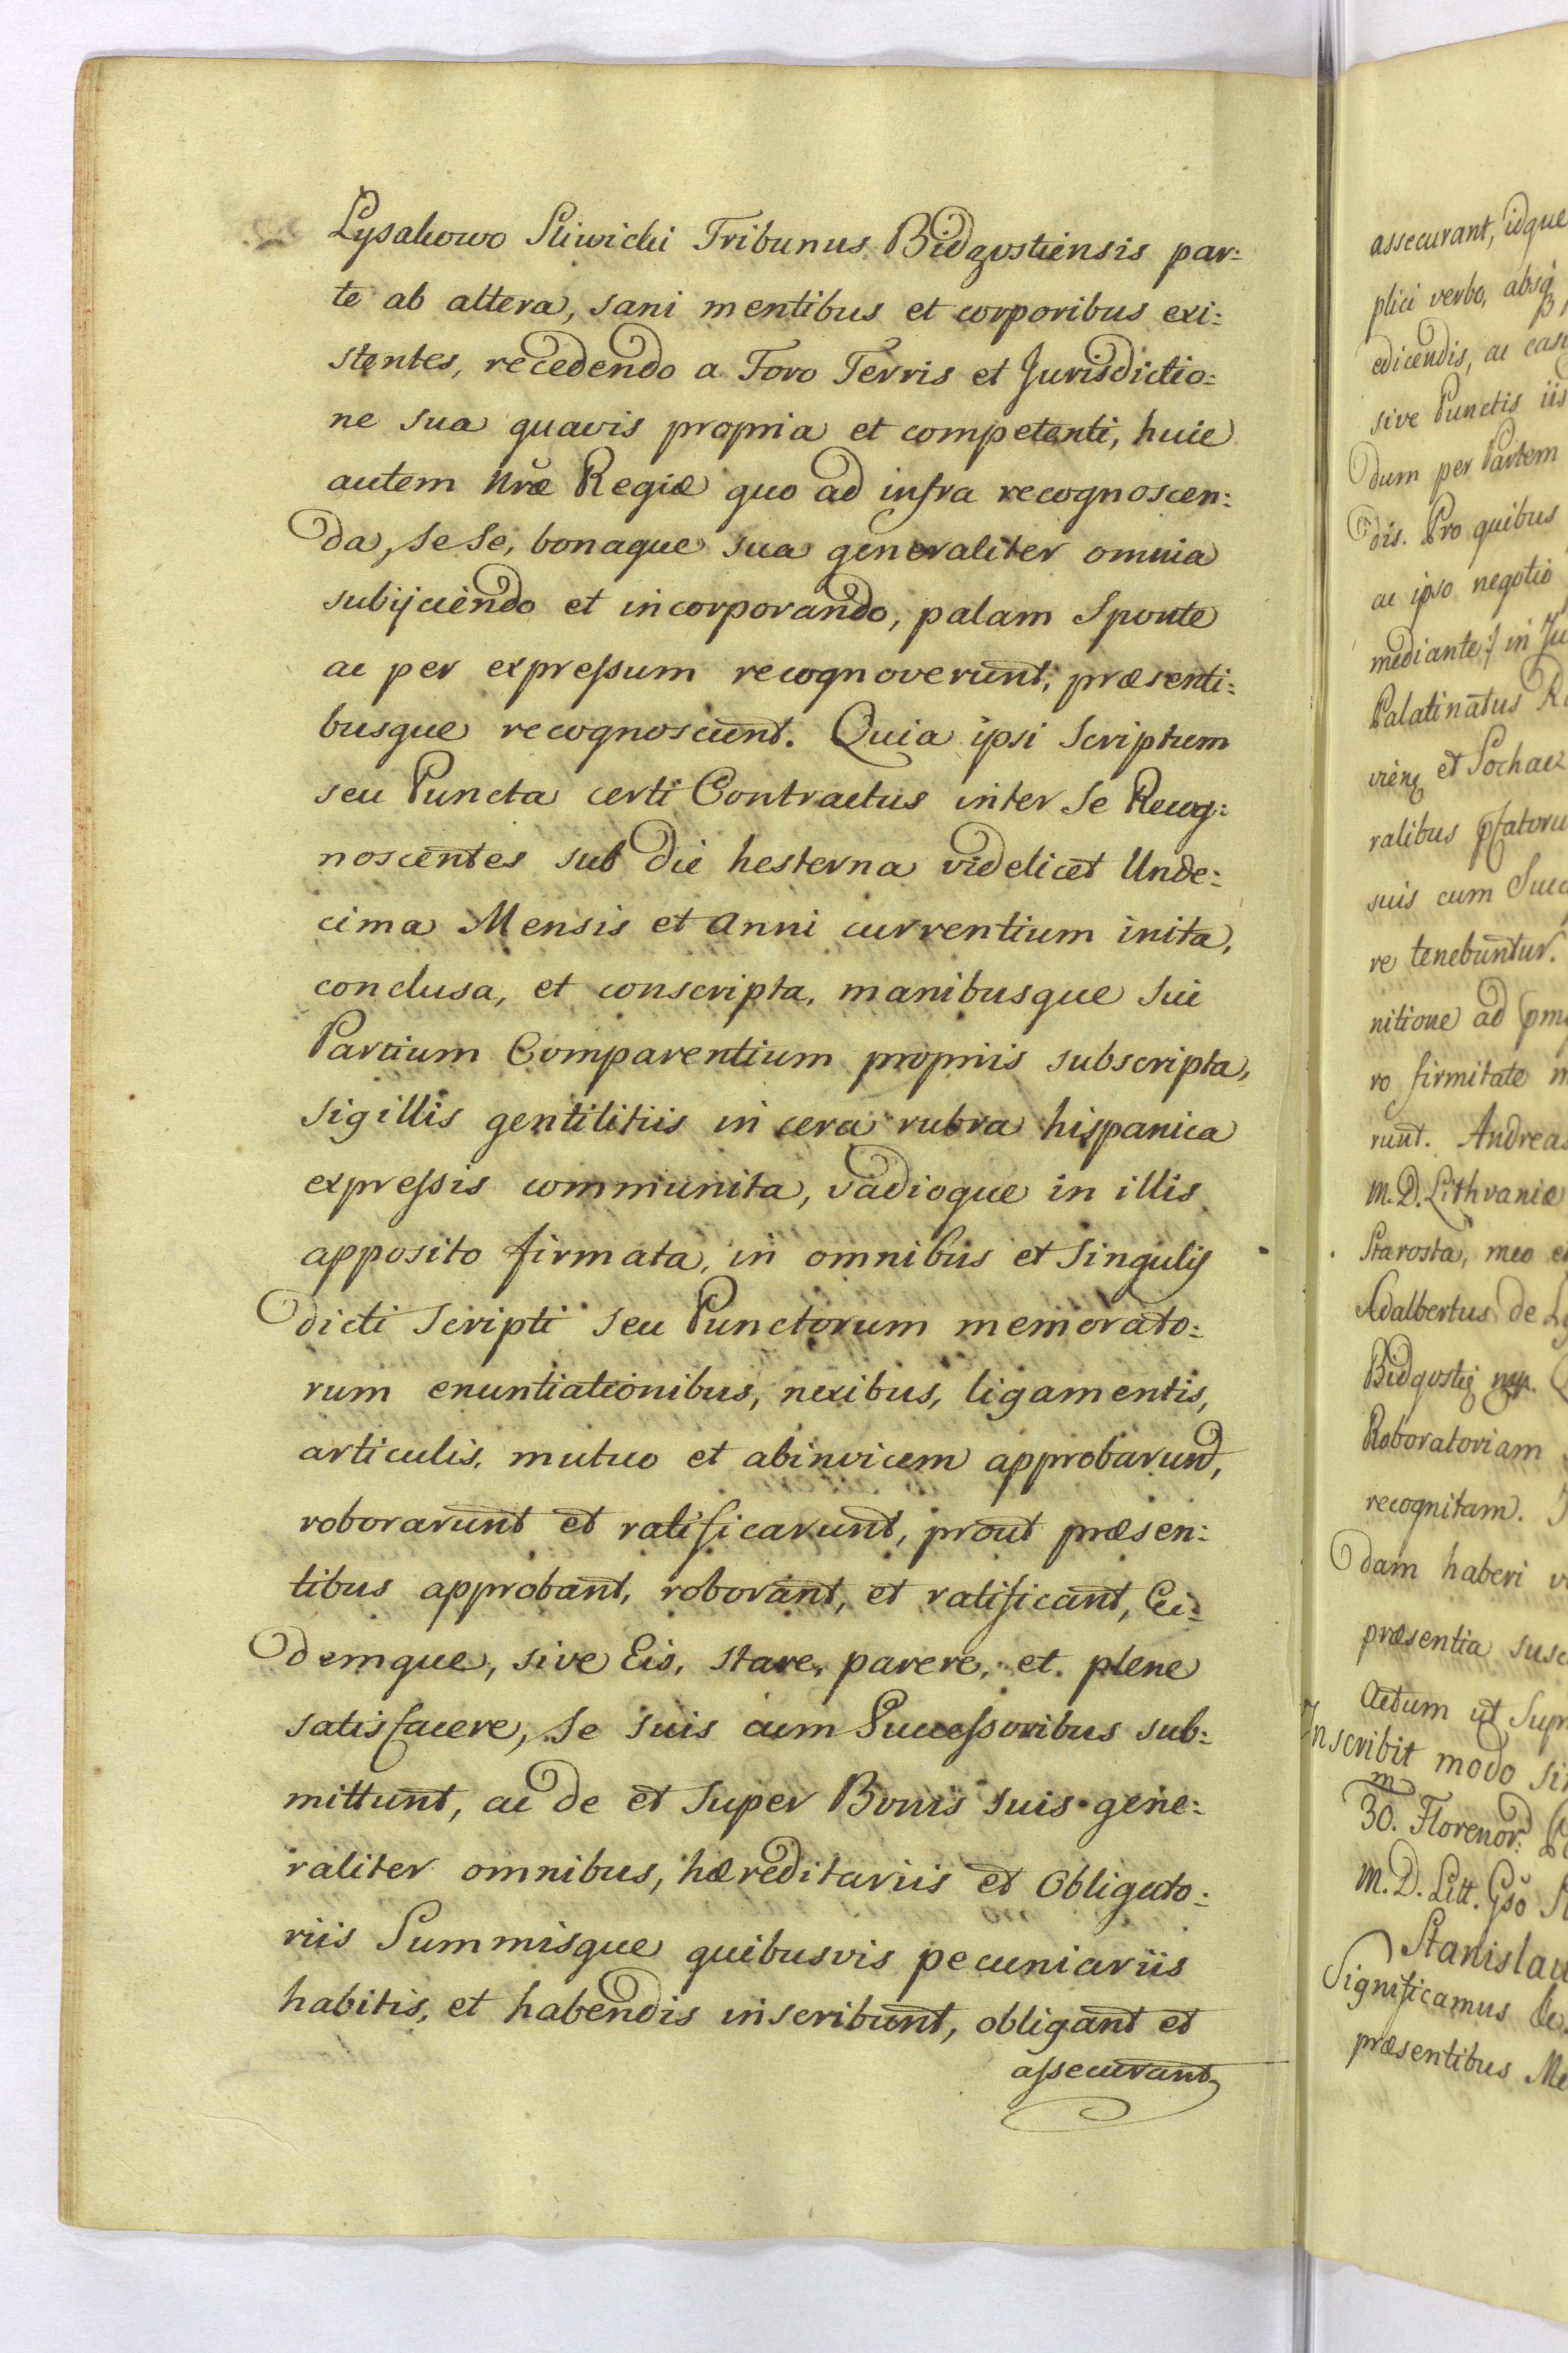 Lysakowo Sliwicki Tribunus Bidgostiensis par:
te ab altera, sani mentibus et corporibus exi:
stentes, recedendo a Foro Terris et Jurisdictio:
ne sua quavis propria et competenti, huic
autem nrae Regiae quo ad infra recognoscen:
da, se se, bonaque sua generaliter omnia
subijciendo et incorporando, palam sponte
ac per expressum recognoverunt, praesenti:
busque recognoscunt. Quia ipsi Scriptum
seu Puncta certi Contractus inter se Recog:
noscentes sub die hesterna videlicet Unde:
cima Mensis et Anni currentium inita,
conclusa, et conscripta, manibusque sui
Partium Comparentium propriis subscripta,
sigillis gentilitiis in cera rubra hispanica
expressis communita, vadioque in illis
apposito firmata, in omnibus et singulis
dicti scripti seu Punctorum memorato:
rum enuntiationibus, nexibus, ligamentis,
articulis, mutuo et abinvicem approbarunt,
roborarunt et ratificarunt, prout praesen:
tibus approbant, roborant, et ratificant, Ei:
demque, sive Eis, stare, parere, et plene
satisfacere, se suis cum Successoribus sub:
mittunt, ac de et super Bonis suis gene:
raliter omnibus, haereditariis et Obligato:
riis Summisque quibusvis pecuniariis
habitis, et habendis inscribunt, obligant et
assecurant
assecurant, idque
plici verbo, absq
edicendis, ac
sive Punctis iis
dum per Partem
dis. Pro quibus
ac ipso negotio
mediante:/ in
Palatinatus
et
ralibus
suis cum
re tenebuntur.
nitione ad
ro firmitate
runt. Andreas
M. D. Lithvaniae
Starosta, meo
Adalbertus de
Bidgostię mp.
Roboratoriam
recognitam.
dam haberi
praesentia
Actum ut
Inscribit modo
m
30. Florenor:
M. D. Litt. Gso
Stanislau
Significamus
praesentibus